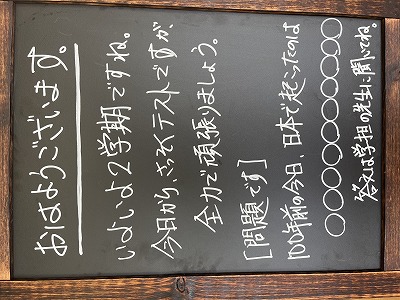 おはようございます。
いよいよ2学期ですね。
今日から、さっそくテストですが、
全力で頑張りましょう。
[問題です]
100年前の今日、日本で起こったのは
○○○○○○○○○○
答えは学担の先生に聞いてね。